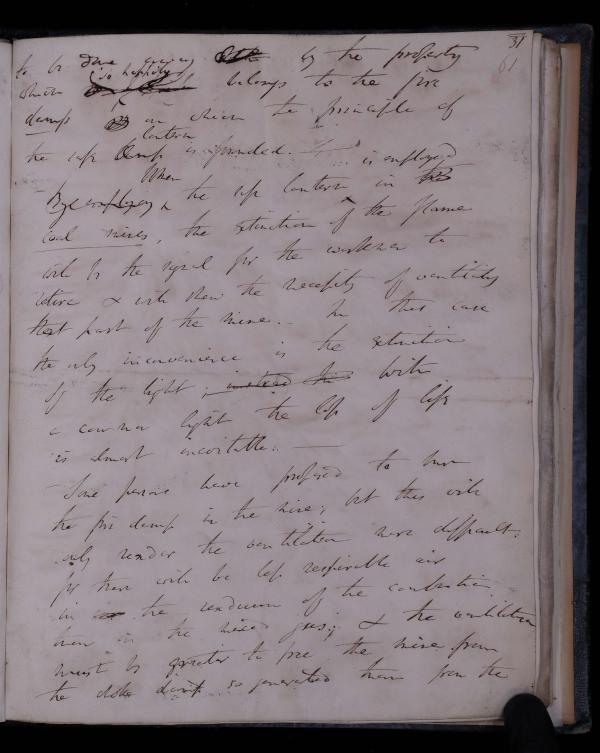 31
61
to be done away by the property
which so happily belongs to the fire
damp on which the principle of
lantern
the safe lamp is founded.
When is employed
By employing the safe lantern in the
coal mines, the extinction of the flame
will be the signal for the workmen to
retire & will shew the necessity of ventilating
that part of the mine. - In this case
the only inconvenience is the extinction
of the light; instead with
a common light the loss of life
is almost inevitable. -
Some persons have proposed to burn
the fire damp in the mine; but this will
only render the ventilation more difficult.
for there will be less respirable air
in the residuum of the combustion
than in the mixed gas; & the ventilation
must be greater to free the mine from
the choke damp so generated than from the